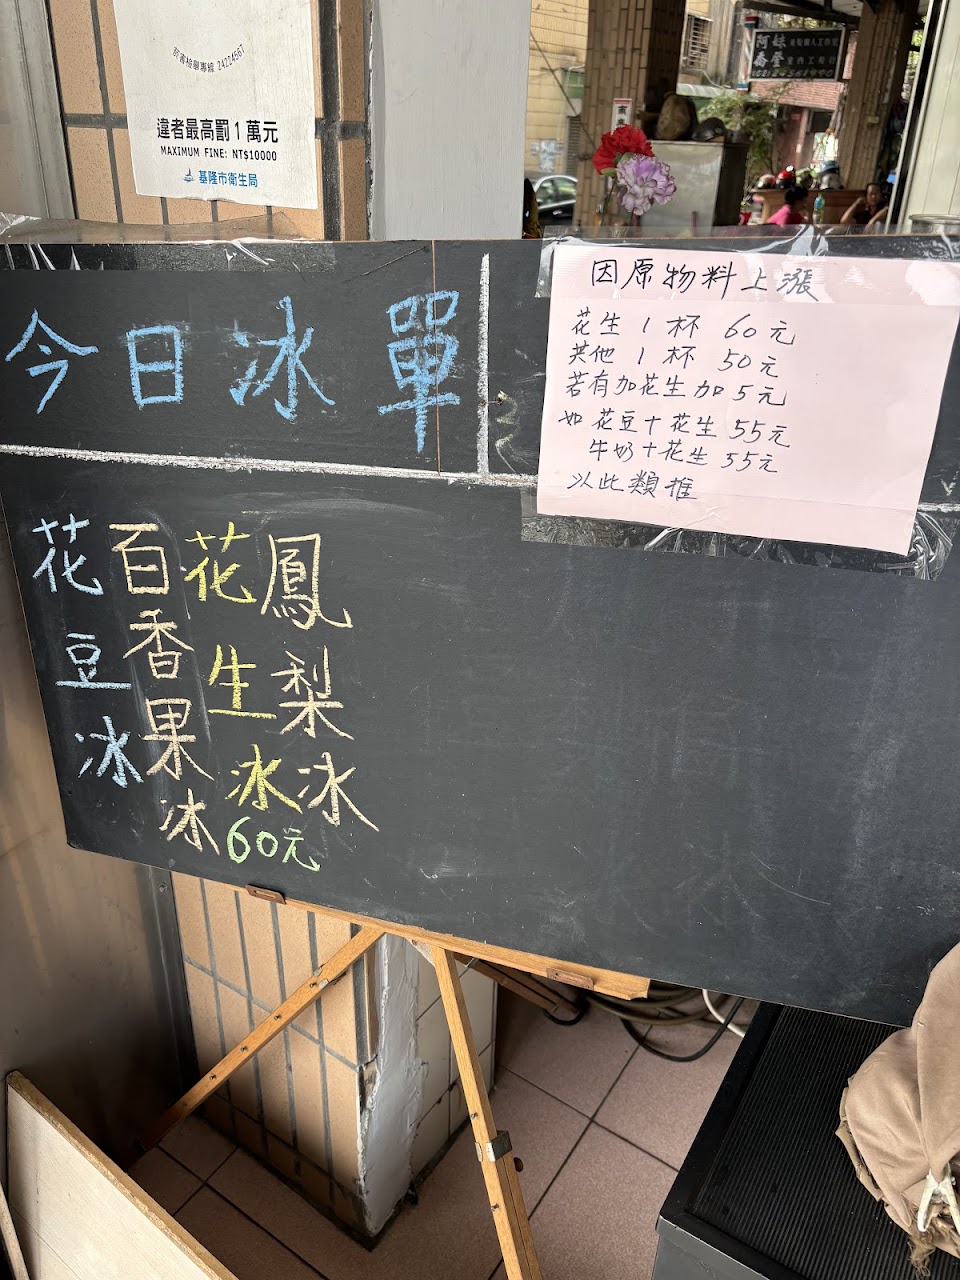 菸害檢舉專線 24224567
違者最高罰1萬元
MAXIMUM FINE: NT$10000
基隆市衛生局
今日冰單
因原物料上漲
花生1杯 60元
其他1杯 50元
若有加花生加5元
如 花豆+花生 55元
牛奶+花生 55元
以此類推
花豆冰
百香果冰
花生冰
60元
鳳梨冰